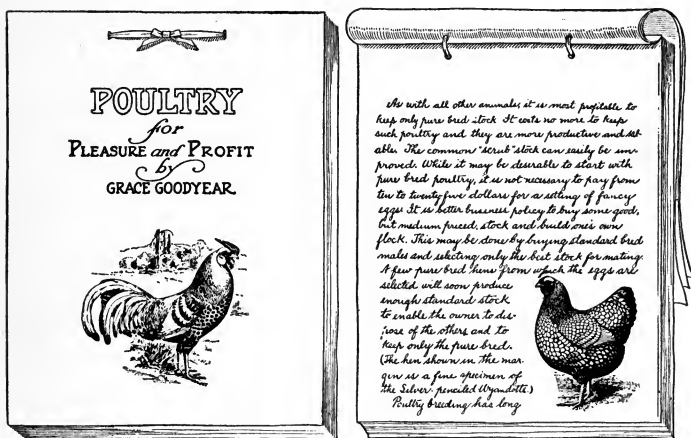 POULTRY
for
PLEASURE and PROFIT
by
GRACE GOODYEAR
As with all other animals, it is most profitable to
keep only pure bred stock It costs no more to keep
such poultry and they are more productive and sal-
able. The common "scrub" stock can easily be im-
proved. While it may be desirable to start with
pure bred poultry, it is not necessary to pay from
ten to twenty five dollars for a setting of fancy
eggs. It is better business policy to buy some good,
but medium priced, stock and build one's own
flock. This may be done by buying standard bred
males and selecting only the best stock for mating.
A few pure bred hens from which the eggs are
selected will soon produce
enough standard stock
to enable the owner to dis-
pose of the others and to
keep only the pure bred.
(The hen shown in the mar-
gin is a fine specimen of
the Silver-penciled Wyandotte.)
Poultry breeding has long